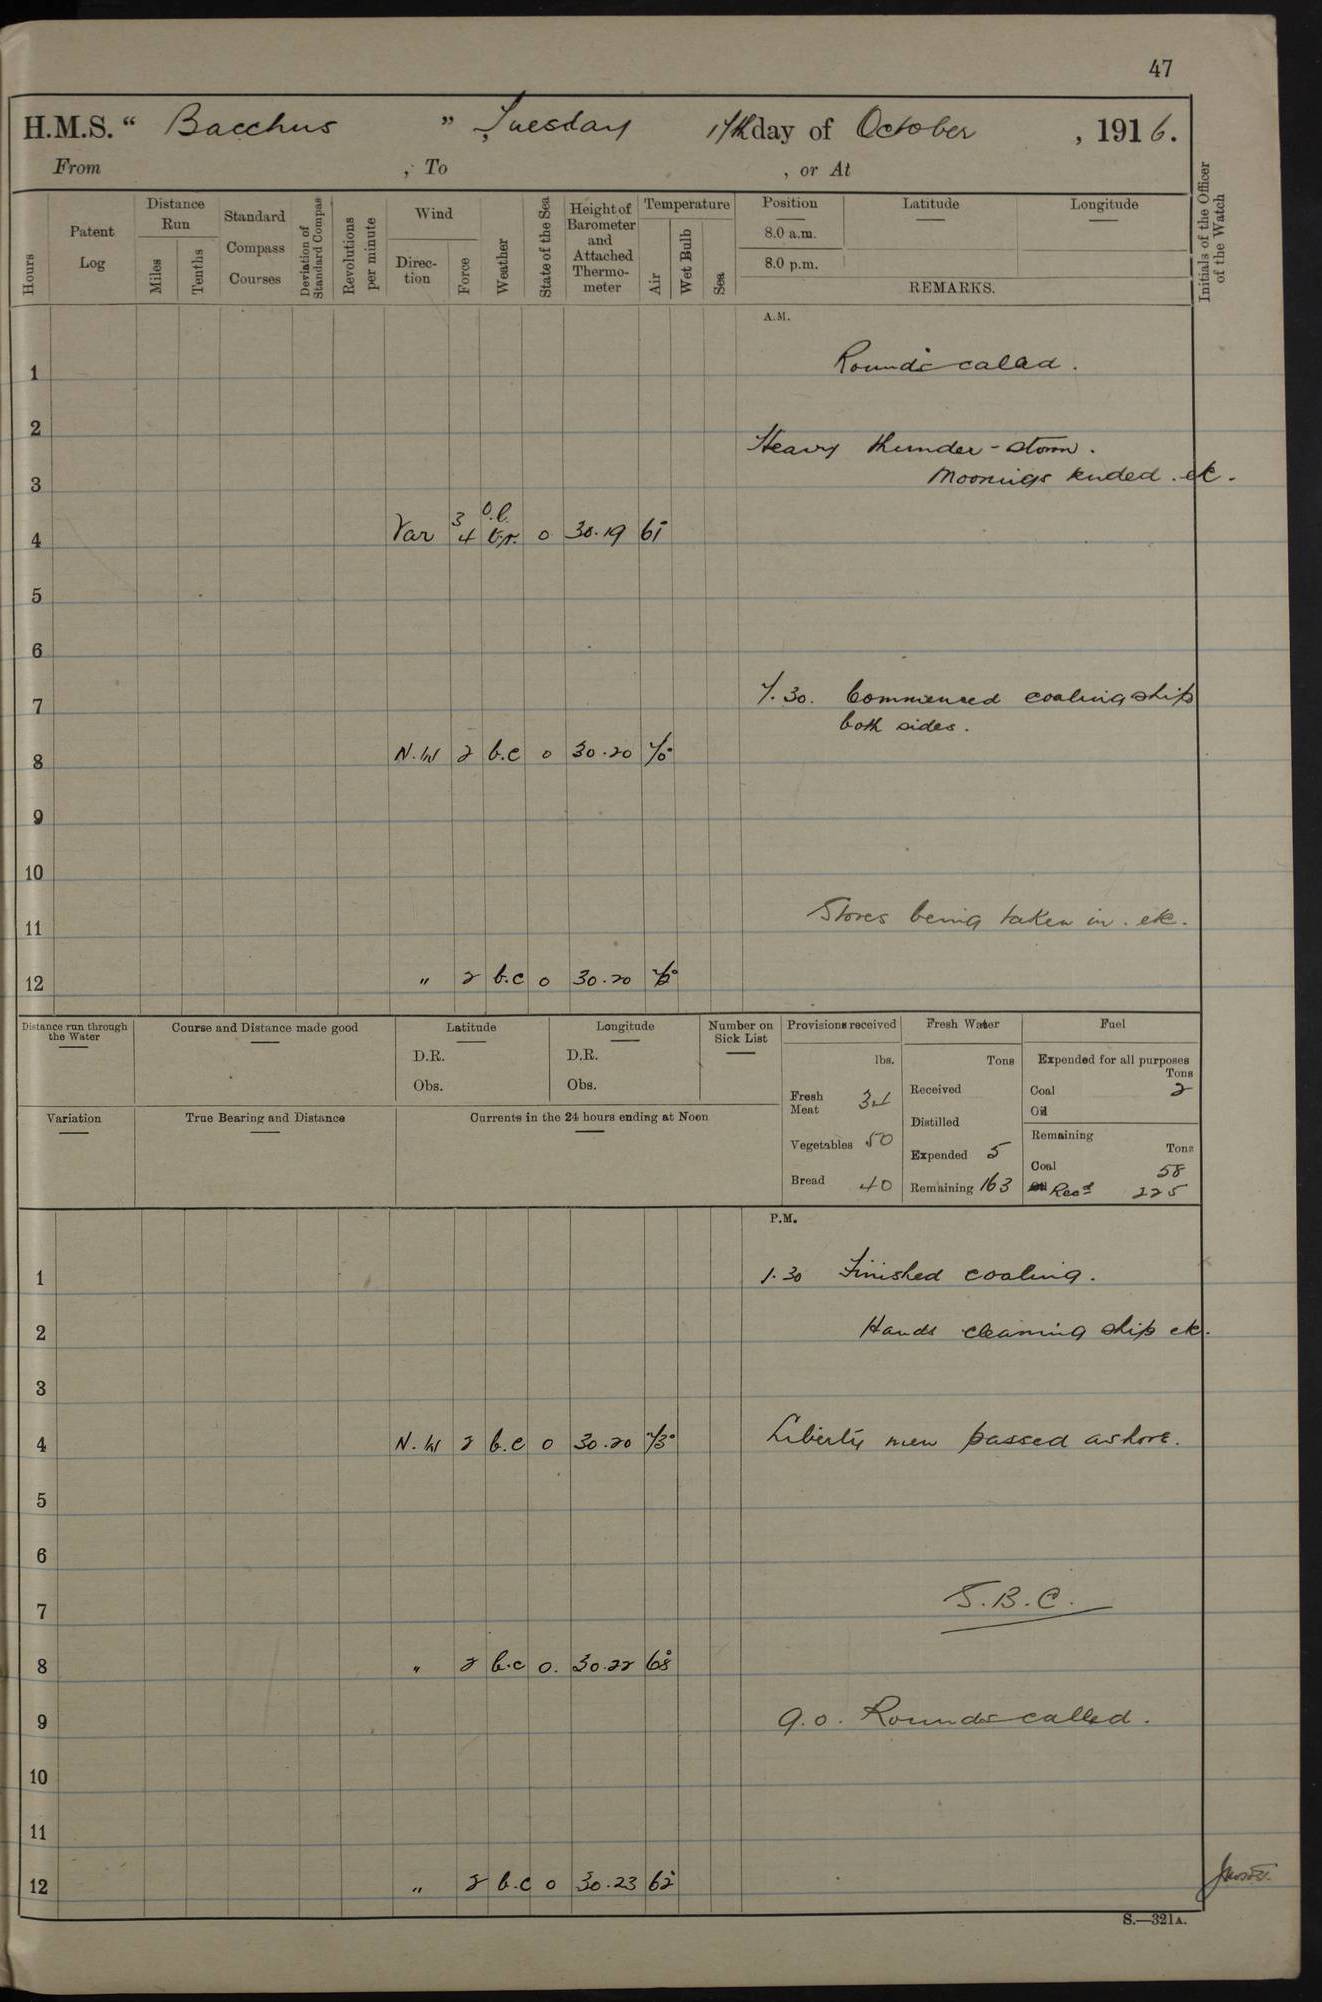 47
H.M.S. “ Bacchus ” , Tuesday 17th day of October , 1916.
From , To , or At
Hours
Patent Log
Distance Run
Miles
Tenths
Standard Compass Courses
Deviation of Standard Compass
Revolutions per minute
Wind
Direc- tion
Force
Weather
State of the Sea
Height of Barometer and Attached Thermo- meter
Temperature
Air
Wet Bulb
Sea
Position
8.0 a.m.
8.0 p.m.
Latitude
Longitude
REMARKS.
Initials of the Officer of the Watch
A.M.
1 Rounds called.
2 Heavy thunder-storm.
3 Moorings tended. etc.
4 Var 3 4 o.l. 0 30.19 65
5
6
7 7.30. Commenced coaling ship
both sides.
8 N.W 2 b.c 0 30.20 70°
9
10
11 Stores being taken in. etc.
12 " 2 b.c 0 30.20
Distance run through the Water
Course and Distance made good
Latitude
D.R.
Obs.
Longitude
D.R.
Obs.
Number on Sick List
Variation
True Bearing and Distance
Currents in the 24 hours ending at Noon
Provisions received
lbs.
Fresh Meat 34
Vegetables 50
Bread 40
Fresh Water
Tons
Received
Distilled
Expended 5
Remaining 163
Fuel
Expended for all purposes
Tons
Coal 2
Oil
Remaining
Tons
Coal 58
Oil Recd 225
P.M.
1 1.30 Finished coaling.
2 Hands cleaning ship etc.
3
4 N.W 2 b.c 0 30.20 73° Liberty men passed ashore.
5
6
7 S.B.C.
8 " 2 b.c 0. 30.22 68°
9 9.0. Rounds called.
10
11
12 " 2 b.c 0 30.23 62°
S.—321A.